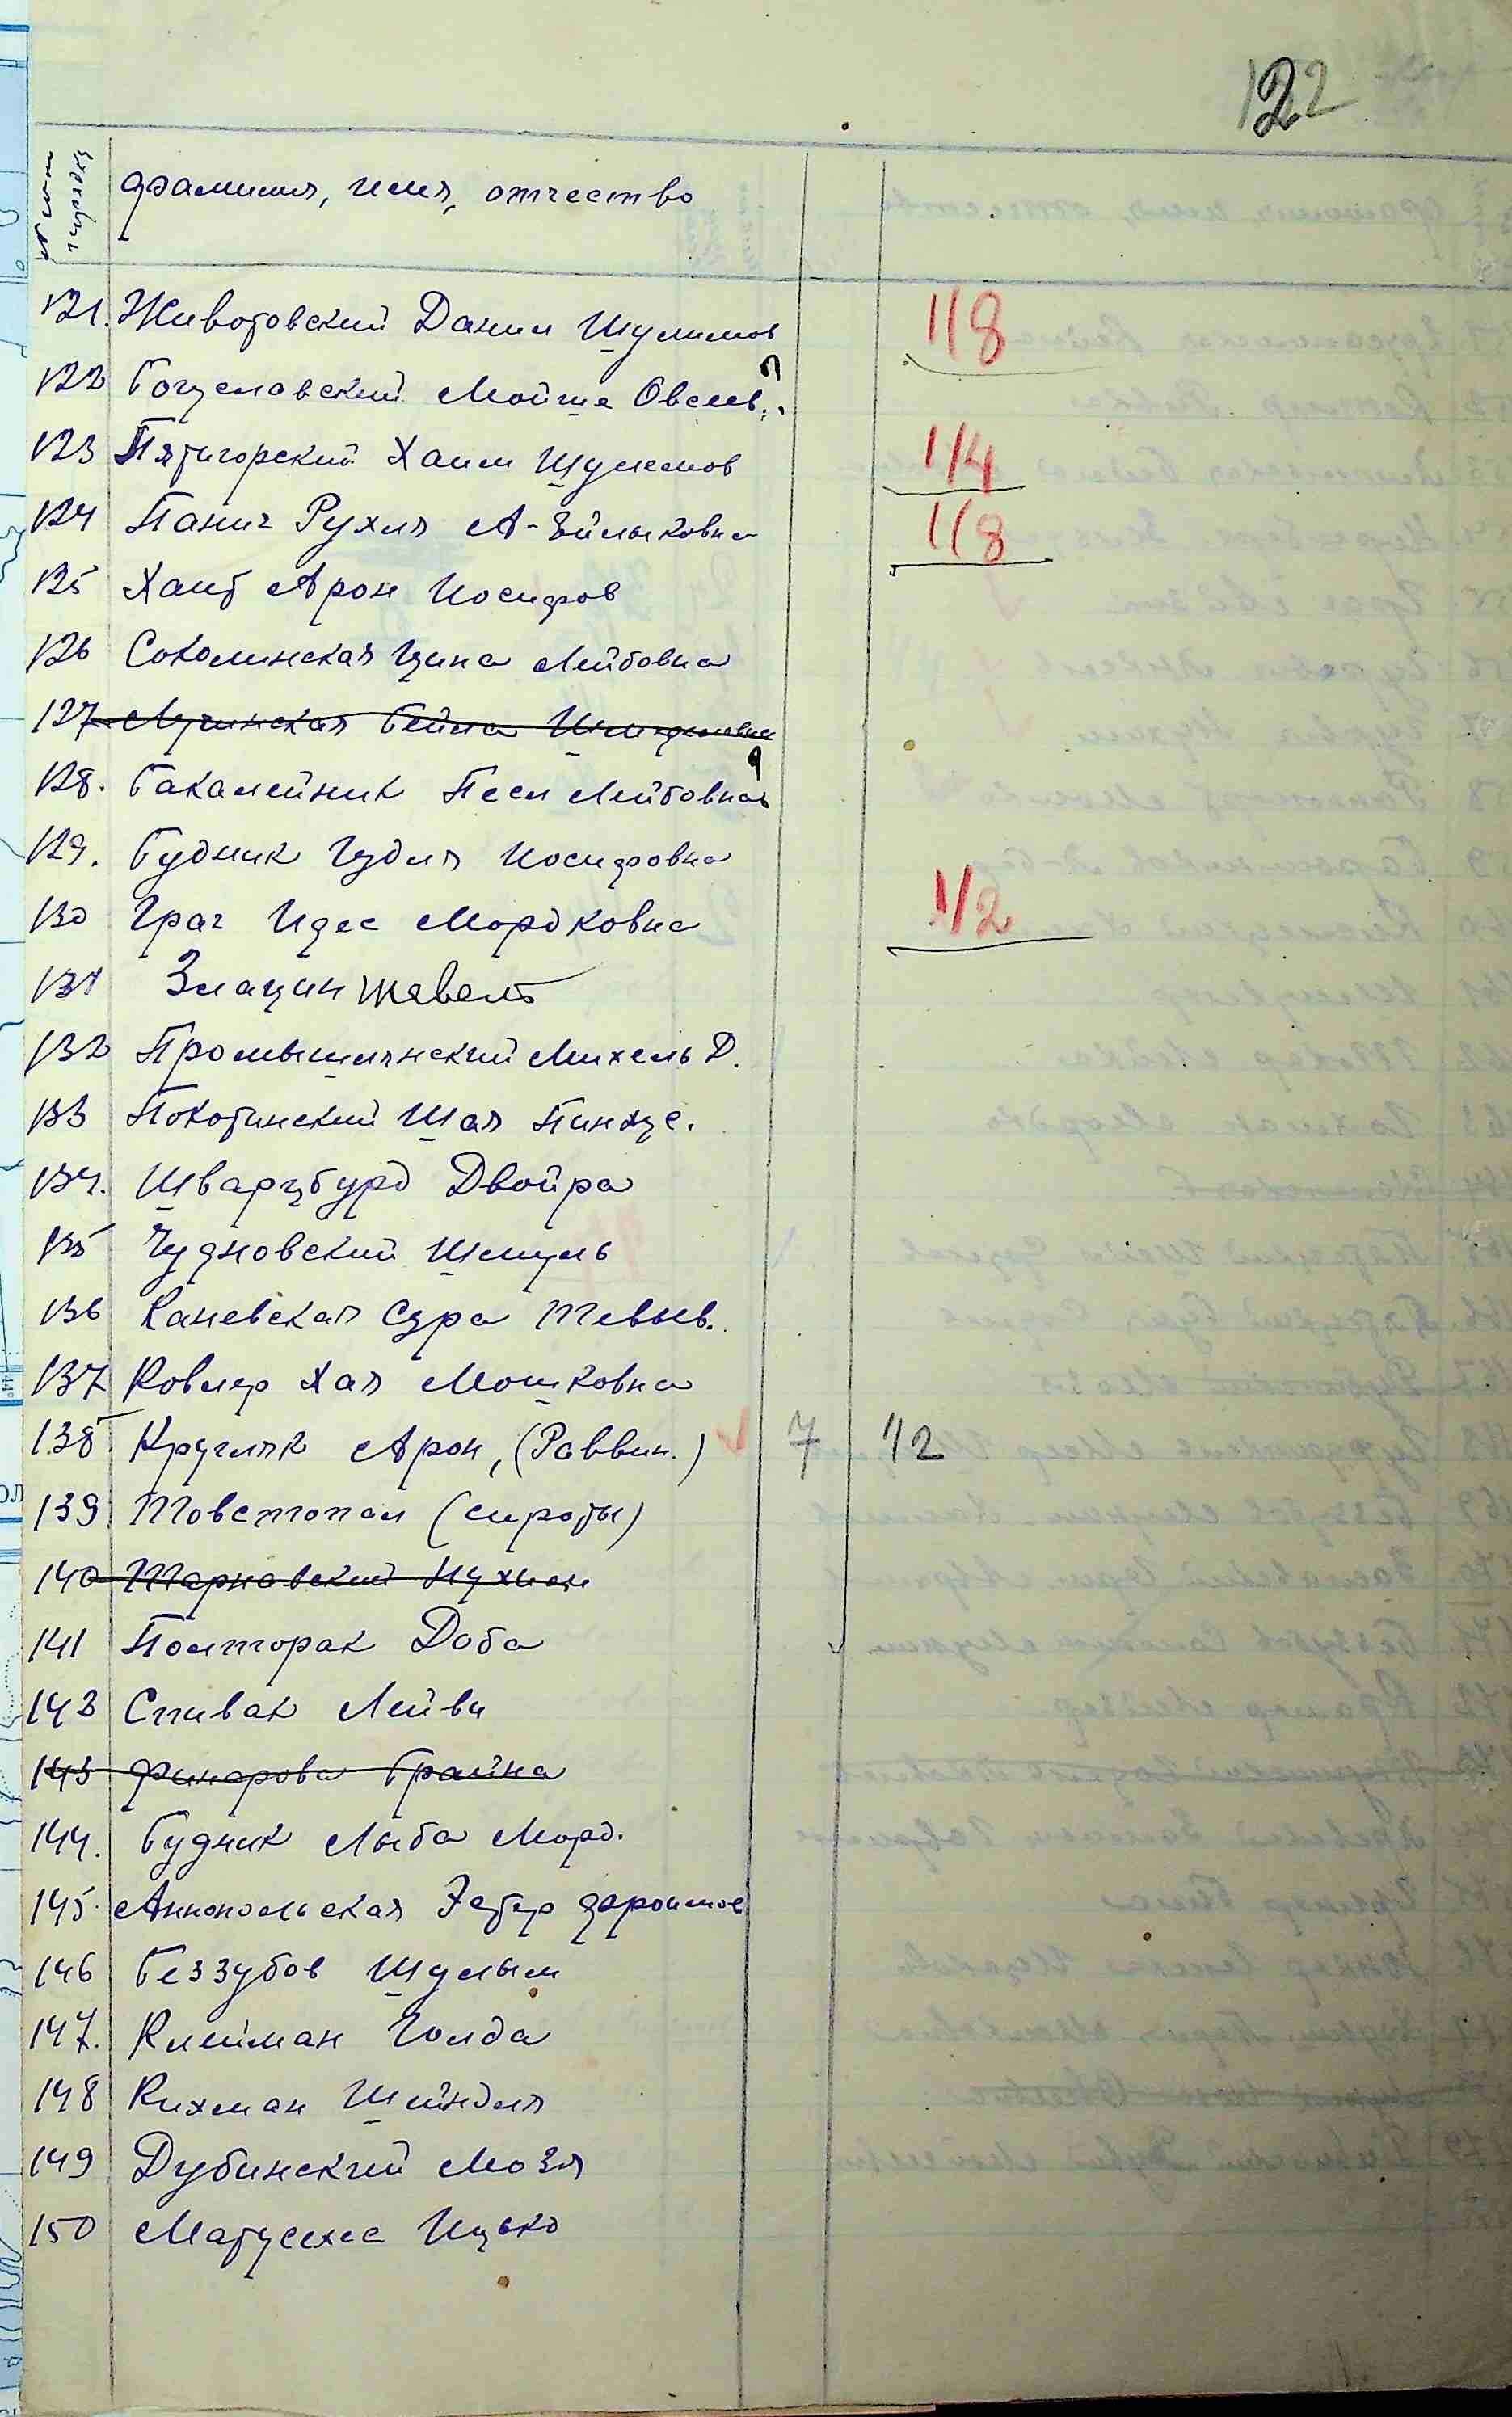 122
фамилия, имя, отчество
121. Животовский Данил Шулимов 118
122 Богуславский Мойше Овсеев.
123 Пятигорский Хаим Шулемов 114
124 Панич Рухля А-Эйлыковна 118
125 Хаит Арон Иосифов
126 Соколинская Ципа Лейбовна
127 Лучинская Бейла
128. Бакалейник Песя Лейбовна
129. Будник Гудля Иосифовна
130 Грач Идес Мордковна 1/2
131 Злацин
132 Промышлянский Михель Д.
133 Покотинский Шая Пинхус.
134. Шварцбурд Двойра
135 Чудновский Шмуль
136 Каневская Сура Тевьев.
137 Ковлер Хая Мошковна
138 Кругляк Арон, (Раввин.) 7 12
139 Товстопал (сироты)
140 Тарновский Нухим
141 Полторак Доба
142 Спивак Лейви
143 Финарова Брайна
144. Будник Лыба Морд.
145. Аннопольская Эстер Фроимов
146 Беззубов Шулым
147. Клейман Голда
148 Кихман Шейндля
149 Дубинский Мозя
150 Матусехес Ицько